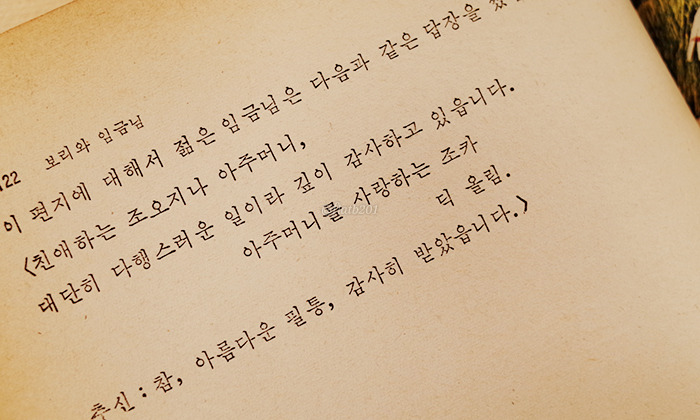 122 보리와 임금님
이 편지에 대해서 젊은 임금님은 다음과 같은 답장을
〈친애하는 조오지나 아주머니,
대단히 다행스러운 일이라 깊이 감사하고 있읍니다.
아주머니를 사랑하는 조카
딕 올림.
추신 : 참, 아름다운 필통, 감사히 받았읍니다.〉